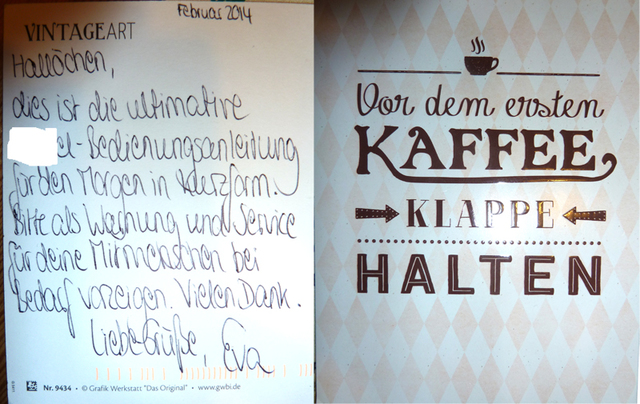 Februar 2014
VINTAGEART
Hallöchen,
dies ist die ultimative
l-Bedienungsanleitung
für den Morgen in Kurzform.
Bitte als Warnung und Service
für deine Mitmenschen bei
Bedarf vorzeigen. Vielen Dank.
Liebe Grüße, Eva
Nr. 9434 • © Grafik Werkstatt "Das Original" • www.gwbi.de
Vor dem ersten
KAFFEE,
KLAPPE
HALTEN